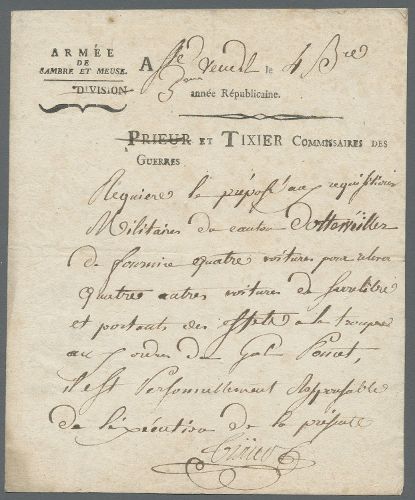 ARMÉE
DE
SAMBRE ET MEUSE.
DIVISION
A St Vendel le 4 Bre
5eme année Républicaine.
PRIEUR ET TIXIER COMMISSAIRES DES
GUERRES
Requiere le préposé aux requisitions
Militaires du canton d'otterweiller
de fournir quatre voitures pour relever
quatre autres voitures de
et portant des effets a la troupe
aux ordres du Gal Poncet,
il est Personnellement Responsable
de l'exécution de la présente
Tixier